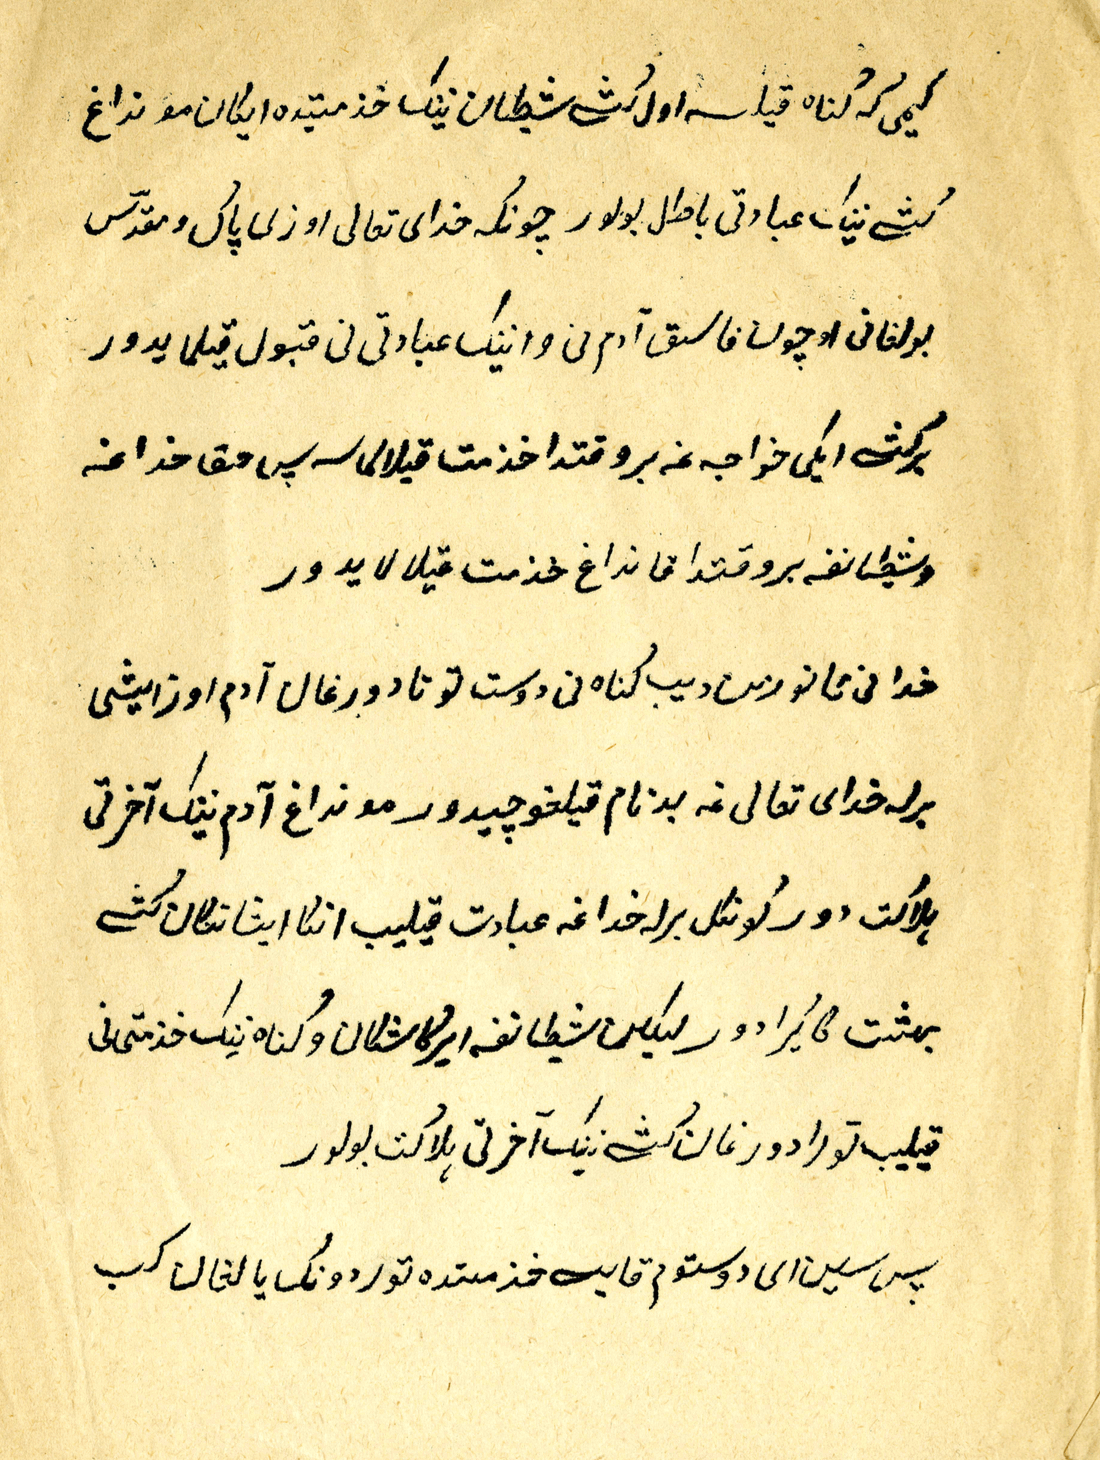 کیمی که کناه قیلسه اول کشی شیطان نینک خذمتیده ایکان مونداغ
کشی نینک عبادتی باطل بولور چونکه خدای تعالی اوزی پاک و مقدّس
بولغانی اوچون فاسق آدم نی و انینک عبادتی نی قبول قیلمایدور
برکشی ایکی خواجه غه بر وقتدا خذمت قیلالماسه پس حقا خداغه
و شیطانغه بر وقتدا قانداغ خذمت قیلالایدور
خدانی تانورمن دیب کناه نی دوست توتادورغان آدم اوز ایشی
برله خدای تعالی غه بدنام قیلغوچیدور مونداغ آدم نینک آخرتی
هلاکت دور کونکل برله خداغه عبادت قیلیب انکا ایشانکان کشی
بهشت کا کیرادور لیکین شیطانغه ایرکاشکان و کناه نینک خذمتی نی
قیلیب تورادورغان کشی نینک آخرتی هلاکت بولور
پس سین ای دوستوم قایسی خذمتده توردونک یالغان کب